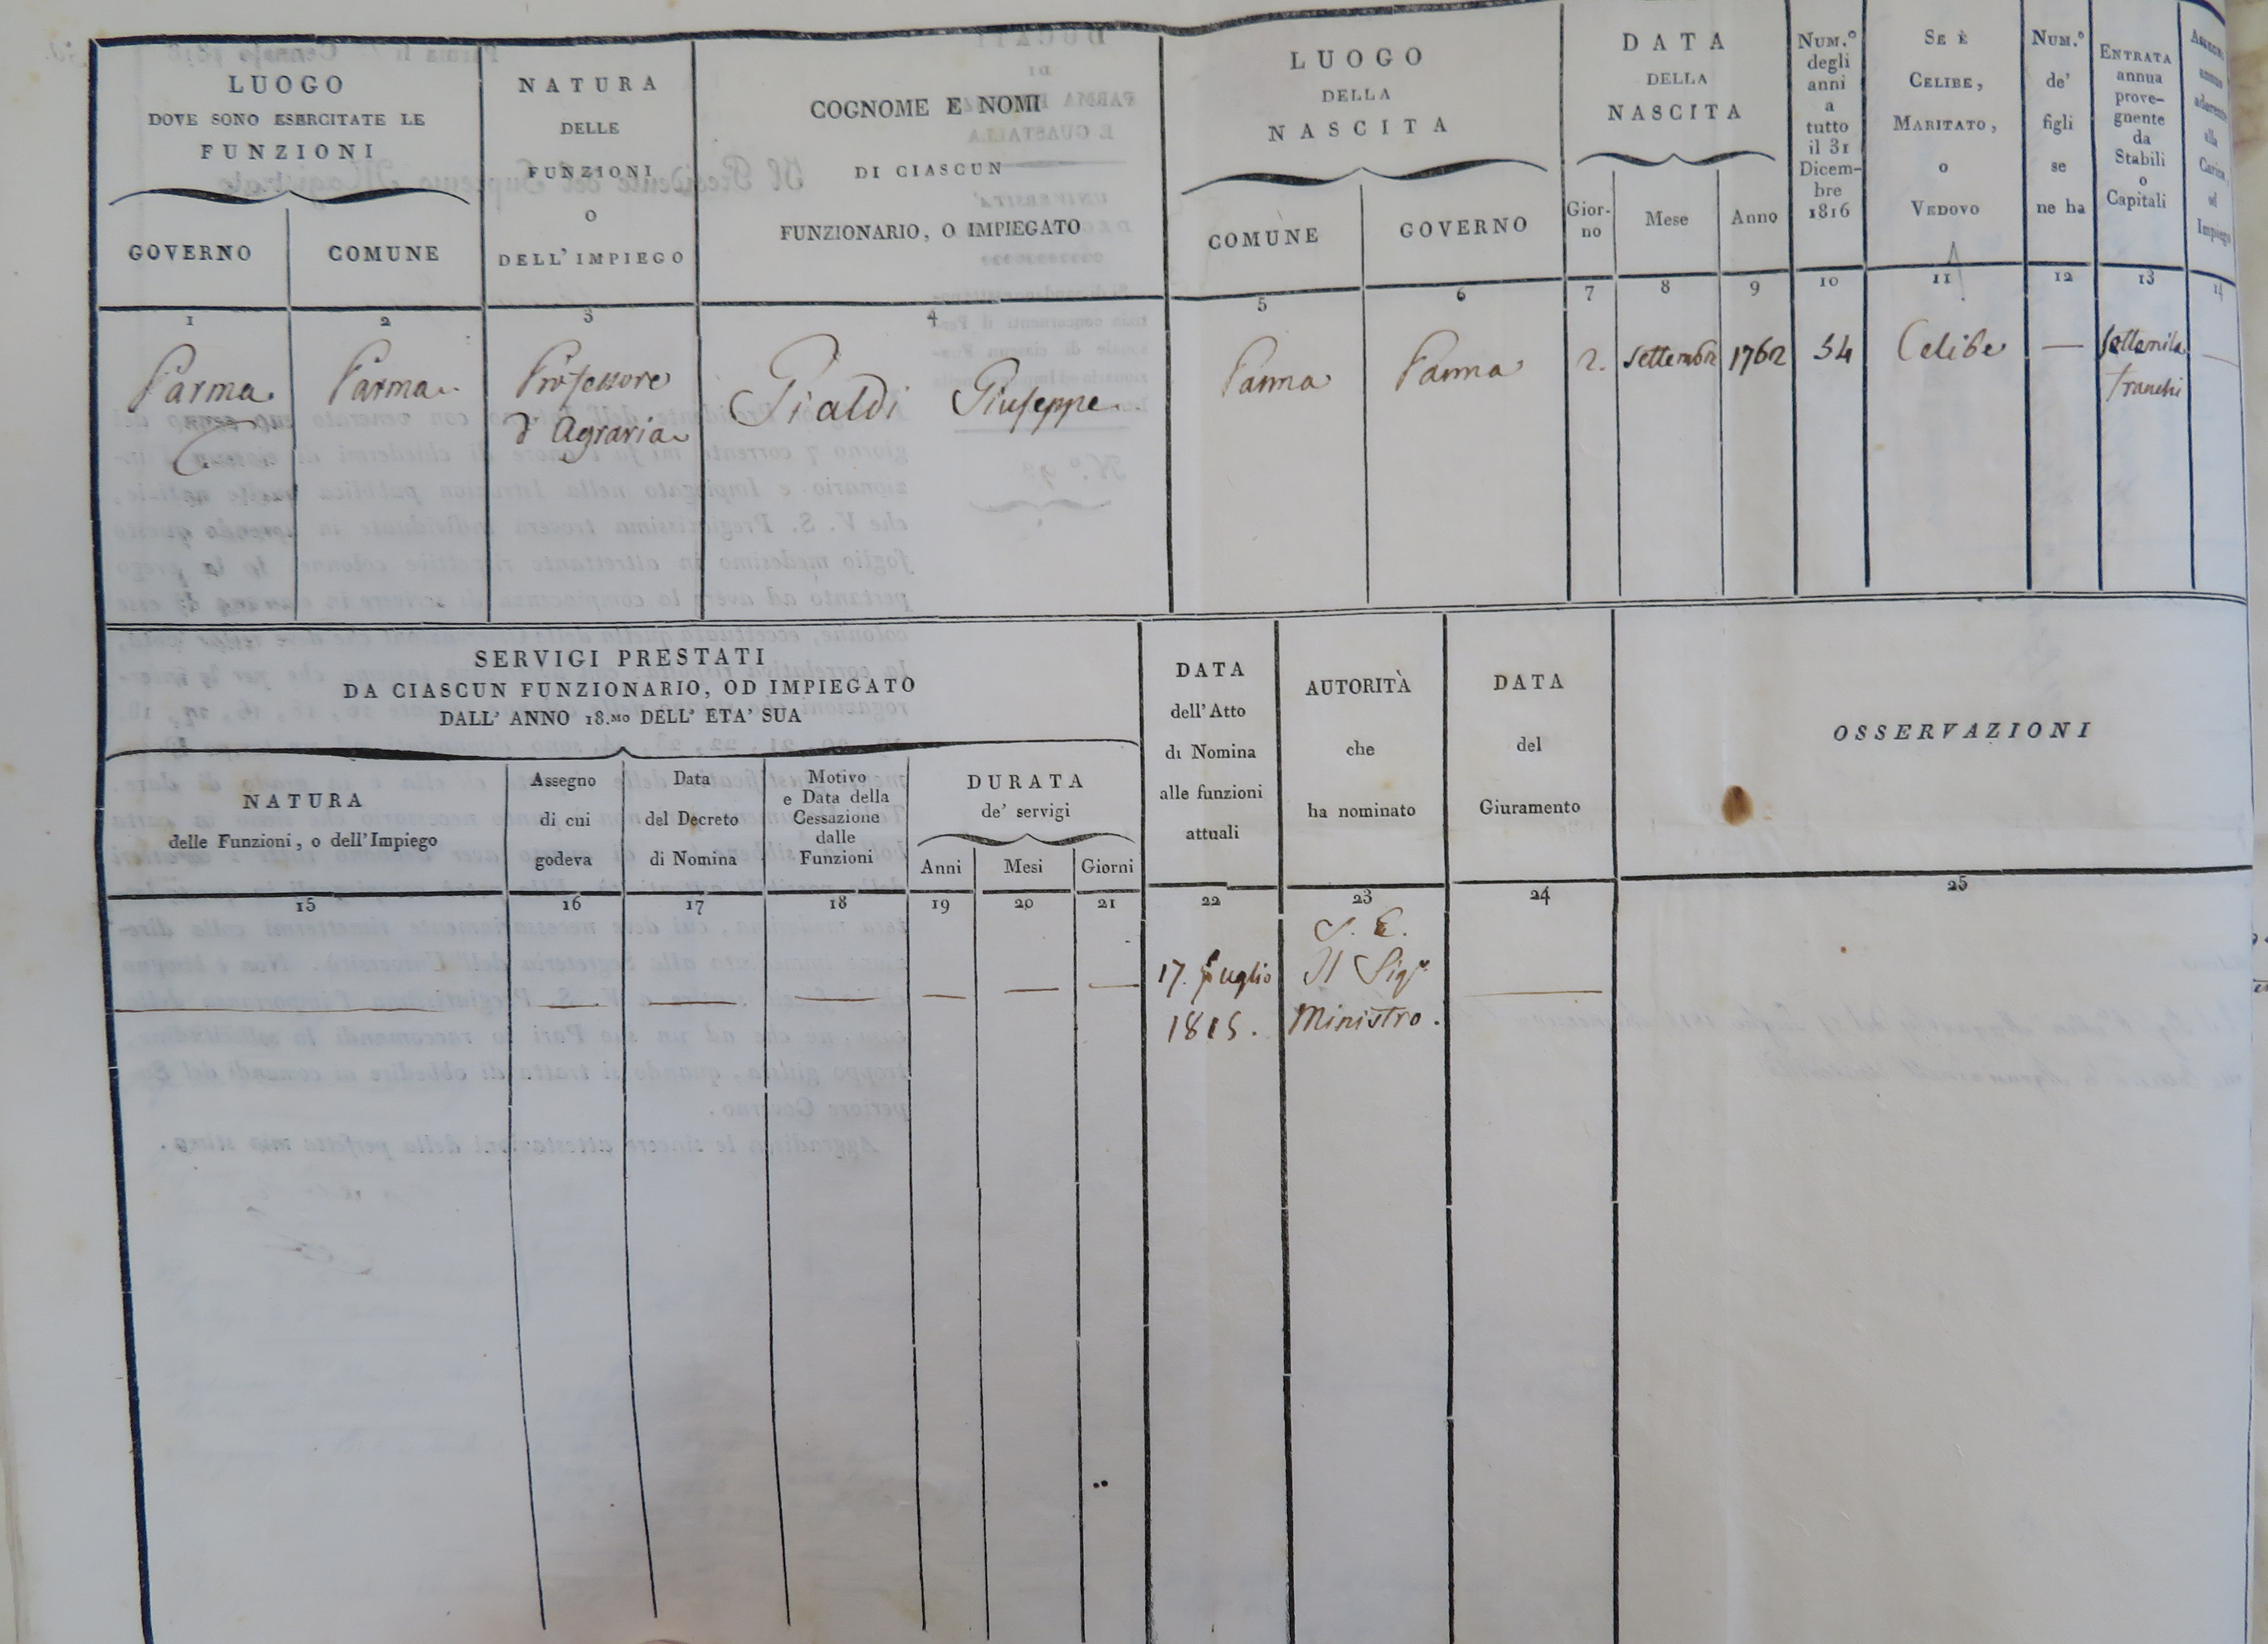 LUOGO
DOVE SONO ESERCITATE LE
FUNZIONI
GOVERNO
COMUNE
NATURA
DELLE
FUNZIONI
O
DELL' IMPIEGO
COGNOME E NOMI
DI CIASCUN
FUNZIONARIO, O IMPIEGATO
LUOGO
DELLA
NASCITA
COMUNE
GOVERNO
DATA
DELLA
NASCITA
Gior-
no
Mese
Anno
NUM.º
degli
anni
a
tutto
il 31
Dicem-
bre
1816
SE È
CELIBE,
MARITATO,
O
VEDOVO
NUM.º
de'
figli
se
ne ha
ENTRATA
annua
prove-
gnente
da
Stabili
o
Capitali
annuo
aderente
alla
Carica,
od
Impiego
1
2
3
4
5
6
7
8
9
10
11
12
13
14
Parma
Parma
Professore
d'Agraria
Pialdi Giuseppe
Parma
Parma
2.
Settembre
1762
54
Celibe
—
Settemila
franchi
—
SERVIGI PRESTATI
DA CIASCUN FUNZIONARIO, OD IMPIEGATO
DALL' ANNO 18.MO DELL' ETA' SUA
NATURA
delle Funzioni, o dell'Impiego
Assegno
di cui
godeva
Data
del Decreto
di Nomina
Motivo
e Data della
Cessazione
dalle
Funzioni
DURATA
de' servigi
Anni
Mesi
Giorni
DATA
dell'Atto
di Nomina
alle funzioni
attuali
AUTORITÀ
che
ha nominato
DATA
del
Giuramento
OSSERVAZIONI
15
16
17
18
19
20
21
22
23
24
25
17. Luglio
1815.
S. E.
Il Sigr
Ministro.